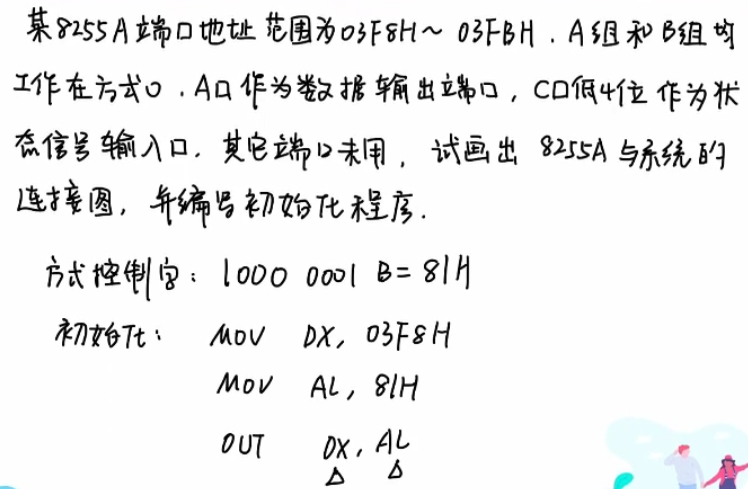 某8255A端口地址范围为03F8H～03FBH.A组和B组均
工作在方式0.A口作为数据输出端口，C口低4位作为状
态信号输入口.其它端口未用，试画出8255A与系统的
连接图，并编写初始化程序.
方式控制字：1000 0001 B=81H
初始化： MOV DX, 03F8H
MOV AL, 81H
OUT DX, AL
△ △